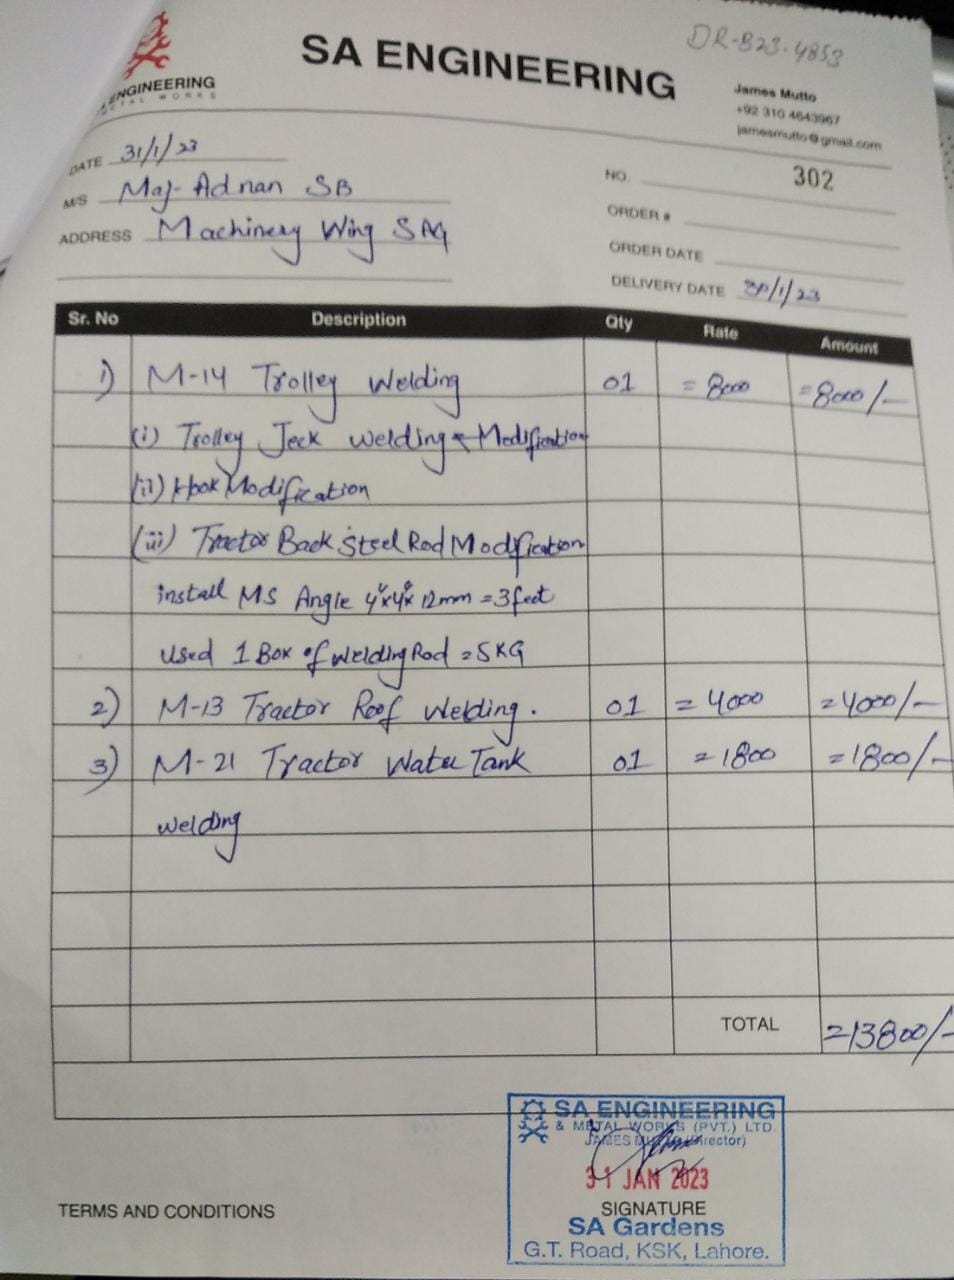 DR-B23-4853
SA ENGINEERING
ENGINEERING
METAL WORKS
James Mutto
+92 310 4643967
jamesmutto@gmail.com
DATE 31/1/23
M/S Maj-Adnan SB
ADDRESS Machinery Wing SAG
NO. 302
ORDER #
ORDER DATE
DELIVERY DATE 30/1/23
Sr. No Description Qty Rate Amount
1) M-14 Trolley Welding 01 =8000 =8000/-
(i) Trolley Jeck Welding & Modification
(ii) Hook Modification
(iii) Tractor Back Steel Rod Modification
install MS Angle 4"x4"x 12mm =3feet
used 1 Box of Welding Rod =5KG
2) M-13 Tractor Roof Welding. 01 =4000 =4000/-
3) M-21 Tractor Water Tank 01 =1800 =1800/-
Welding
TOTAL =13800/-
SA ENGINEERING
& METAL WORKS (PVT.) LTD.
JAMES
31 JAN 2023
SIGNATURE
SA Gardens
G.T. Road, KSK, Lahore.
TERMS AND CONDITIONS